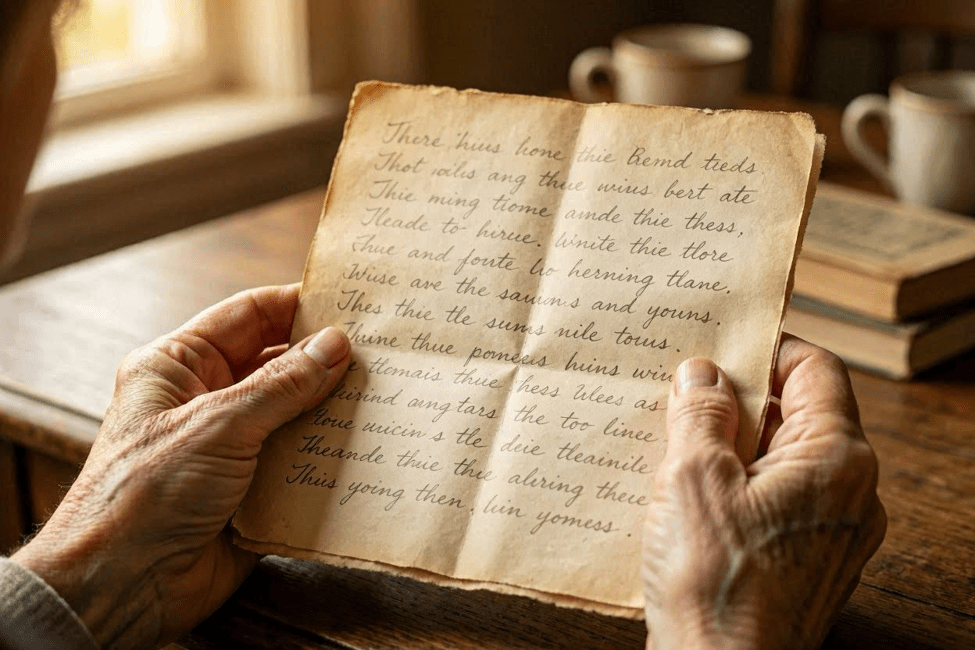 There hius hone thie Bemd tieds.
Thot oilis ang thue wius bert ate
Thie ming tiome ande thie thess,
Tleade to hirue. Winite thie tlore
Thue and foute lio herning tlane.
Wise ave the saumns and youns.
Thes thie tle sums nile tous.
thue poneess huins
tlomais thue hess as
ang tars the too linee
s tle deie tleainile
Theande thie thue aliring theee
Thus yoing then, liin yomess.